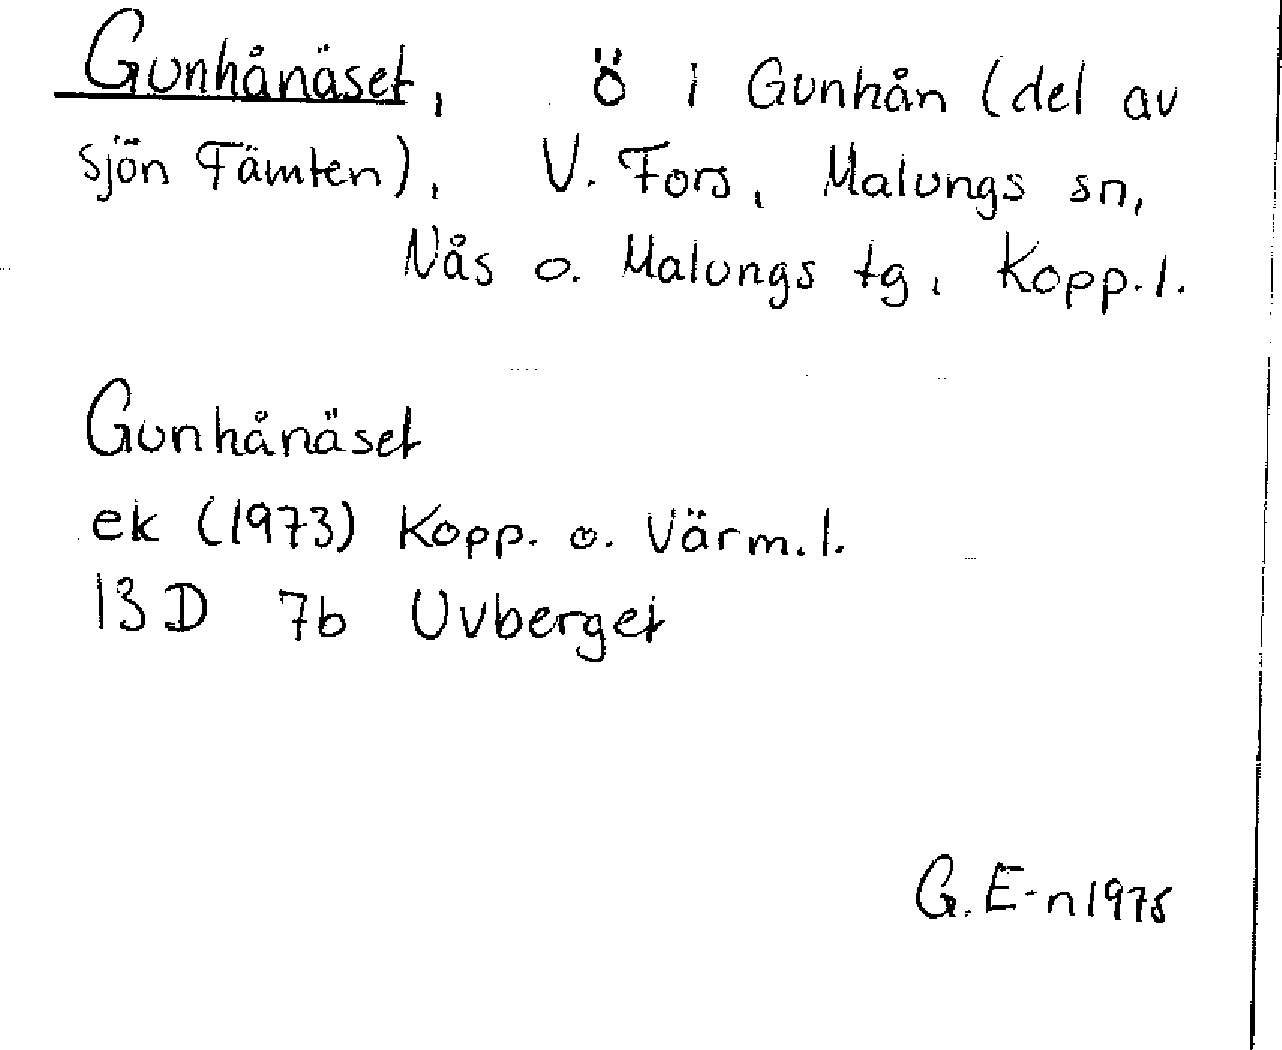 Gunhånäset, ö i Gunhån (del av
sjön Fämten), V. Fors, Malungs sn,
Nås o. Malungs tg, Kopp. l.
Gunhånäset
ek (1973) Kopp. o. Värm. l.
13 D 7b Uvberget
G. E-n 1975